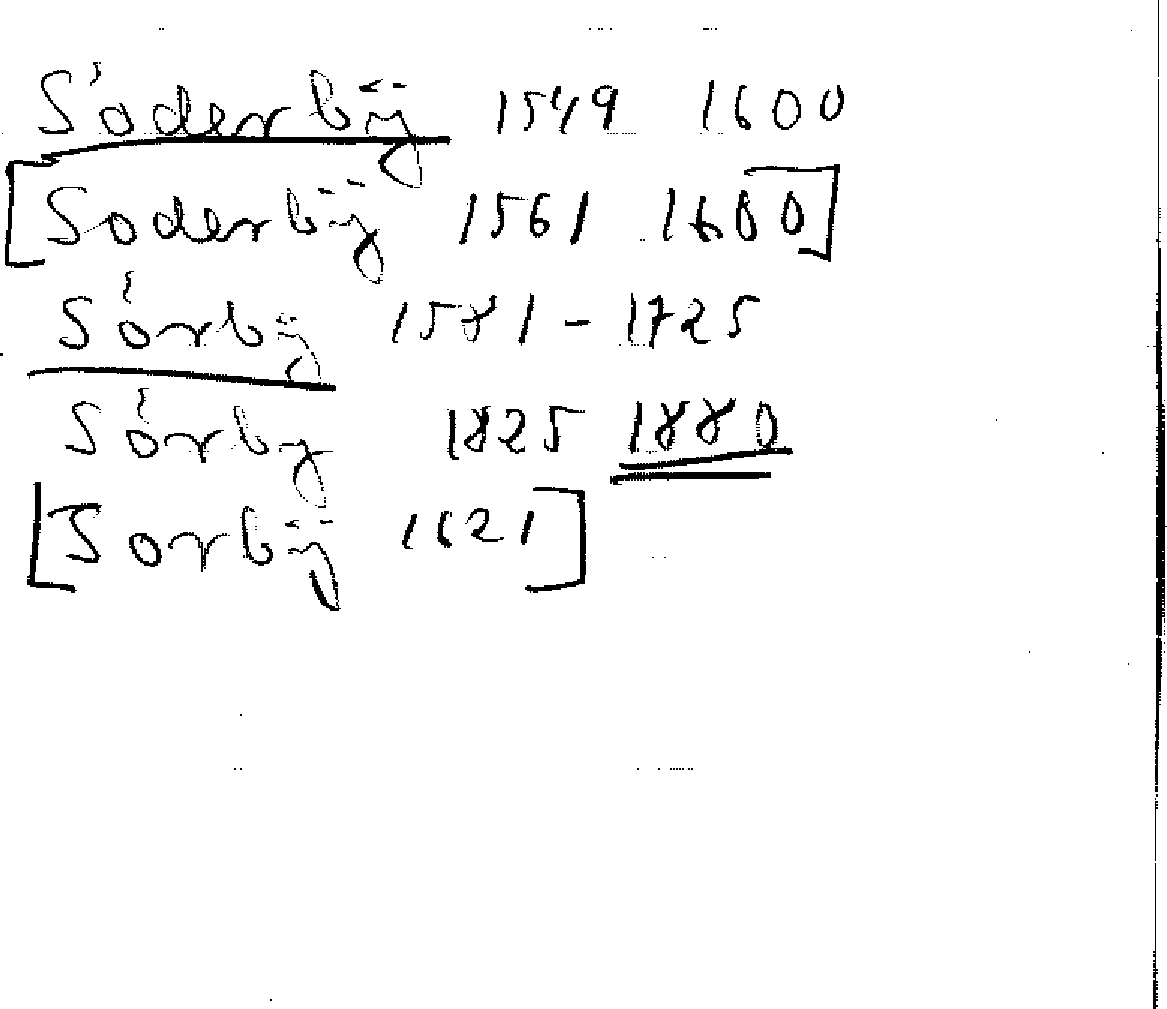 Sóderbÿ 1549 1600
[Soderbÿ 1561 1600]
Sórbÿ 1581-1725
Sórby 1825 1880
[Sorbÿ 1621]